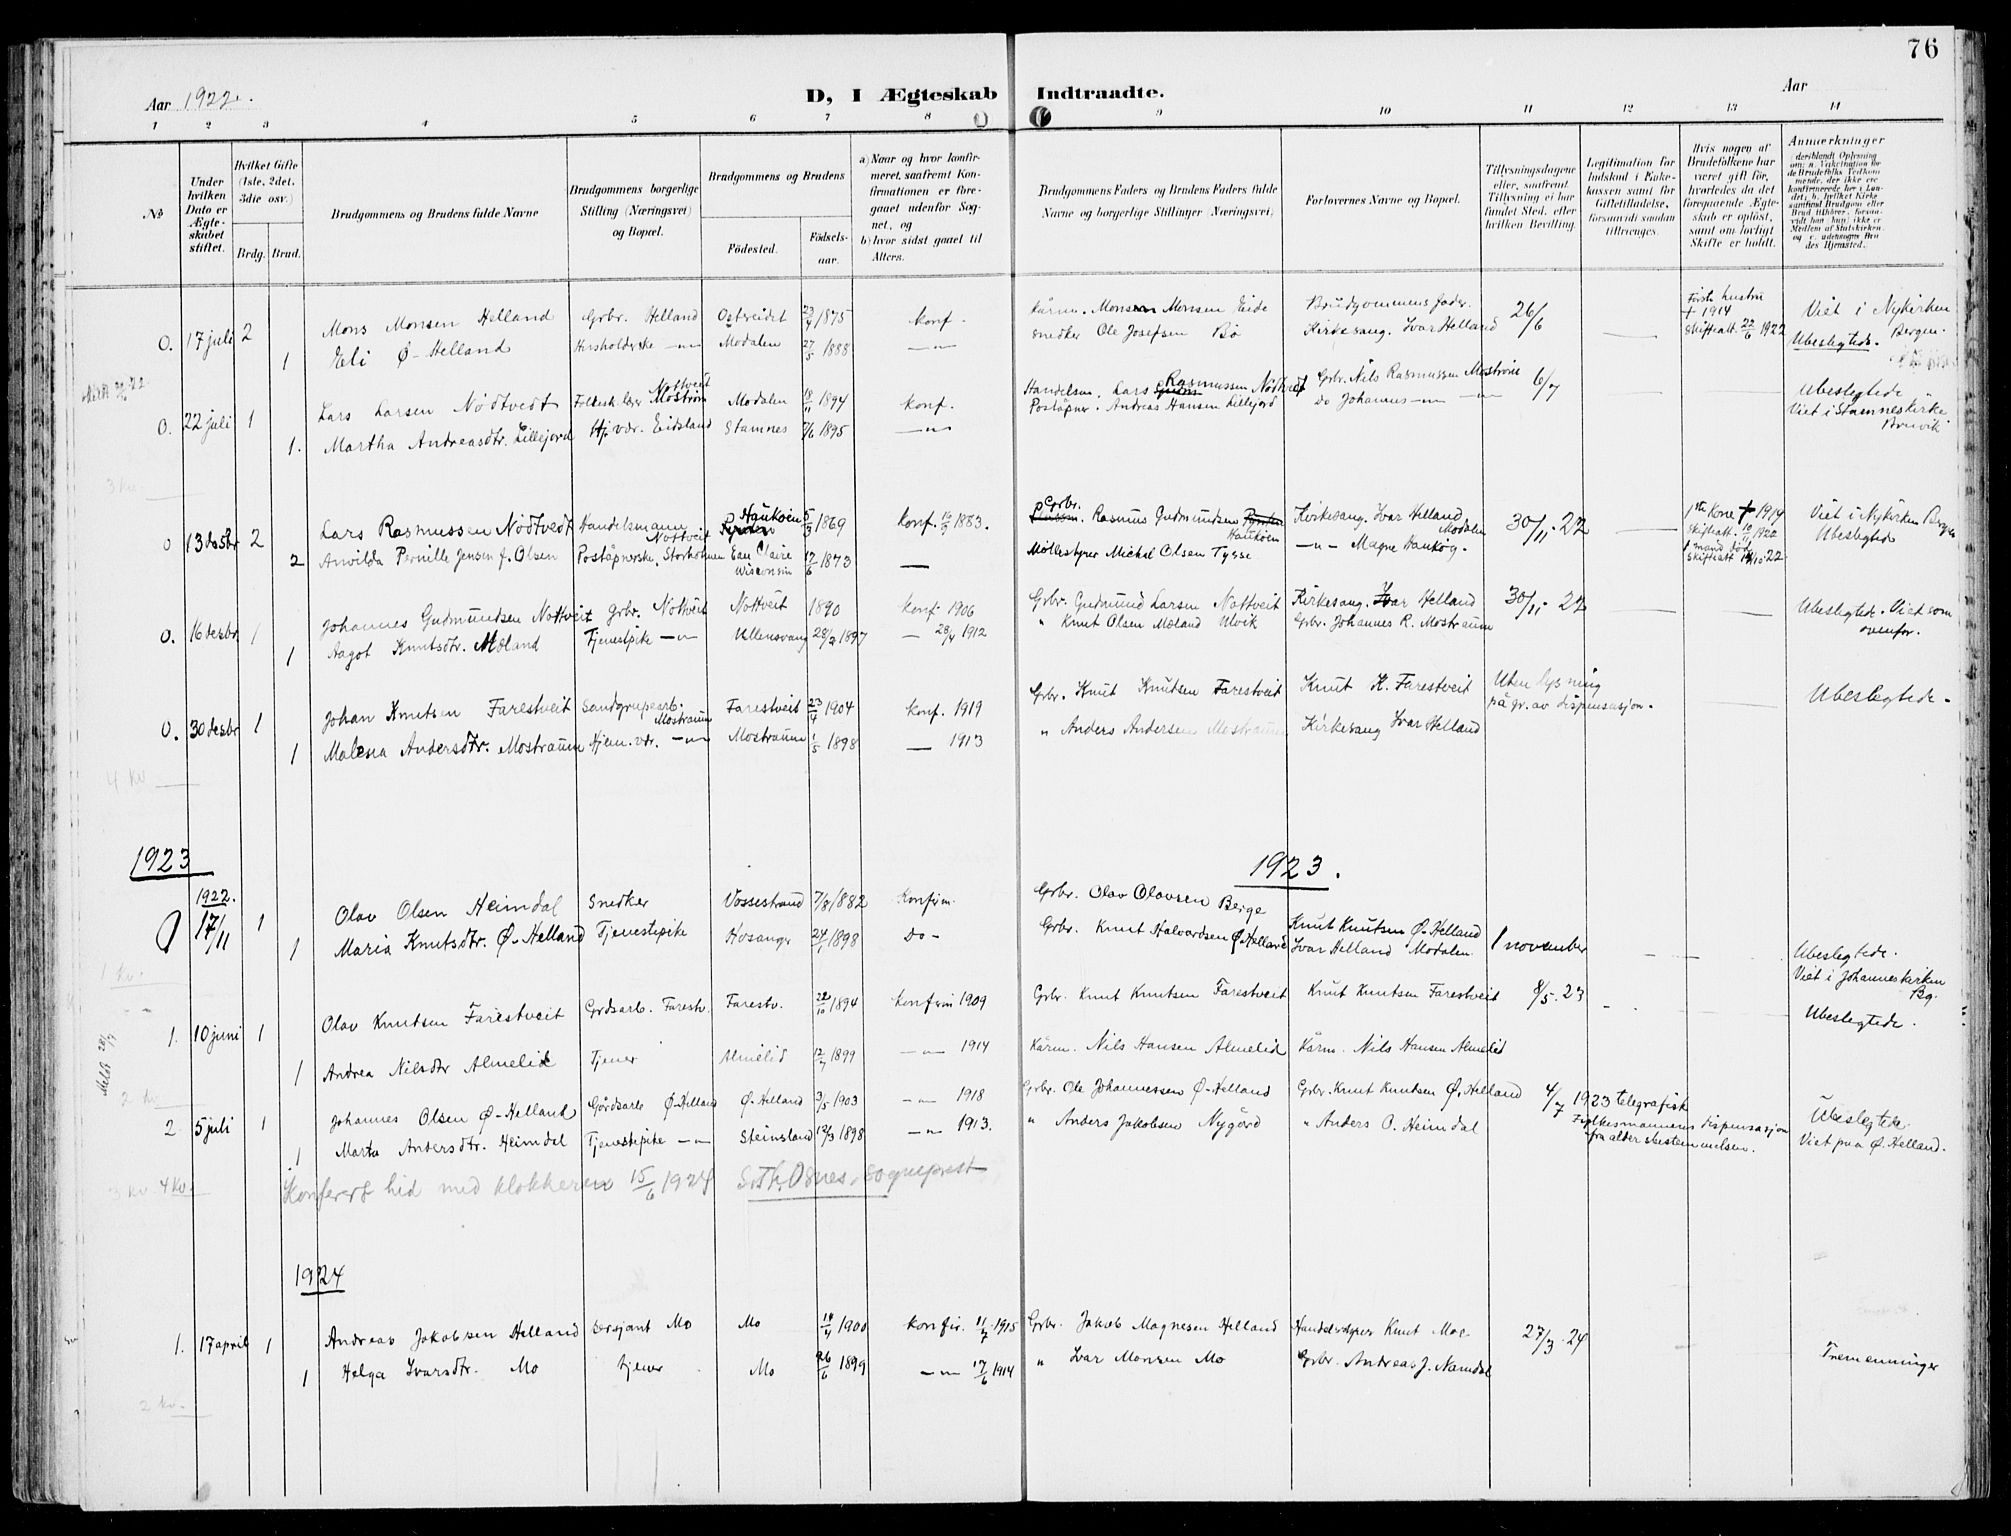 76
Aar 1922.
D, I Ægteskab Indtraadte.
Aar
1 2 3 4 5 6 7 8 9 10 11 12 13 14
No
Under hvilken Dato er Ægteskabet stiftet.
Hvilket Gifte (1ste, 2det, 3die osv.)
Brdg. Brud.
Brudgommens og Brudens fulde Navne
Brudgommens borgerlige Stilling (Næringsvei) og Bopæl.
Brudgommens og Brudens
Födested.
Födsels-aar.
a) Naar og hvor konfirmeret, saafremt Konfirmationen er foregaaet udenfor Sognet, og
b) hvor sidst gaaet til Alters.
Brudgommens Faders og Brudens Faders fulde Navne og borgerlige Stillinger (Næringsvei)
Forlovernes Navne og Bopæl.
Tillysningsdagene eller, saafremt Tillysning ei har fundet Sted, efter hvilken Bevilling.
Legitimation for Indskud i Enkekassen samt for Giftetilladelse, forsaavidt saadan tiltrænges.
Hvis nogen af Brudefolkene har været gift før, hvorledes da det foregaaende Ægteskab er opløst, samt om lovligt Skifte er holdt.
Anmærkninger
O. 17 juli 2 Mons Monsen Helland Grbr. Helland Ostereidet 1875 konf. Kårm. Monsen Eide Brudgommens fader. 26/6 Første hustru + 1914 skifteatt. 22/6 1922 Viet i Nykirken Bergen.
1 Eli Ø-Helland Husholderske -"- Modalen 27/5 1888 -"- Snedker Ole Josefsen Bø Kirkesang. Ivar Helland Ubeslegtede.
O. 22 juli 1 Lars Larsen Nødtvedt Nottveit Mostrøm Modalen 1894 konf. Handelsm. Lars Rasmussen Nødtvedt Grbr. Nils Rasmussen Mostraum 6/7 Ubeslegtede
1. Martha Andreasdtr. Lillejord Hj. vær. Eidsland Stamnes 1895 -"- Poståpner. Andreas Hansen Lillejord Do Johannes -"- Viet i Stamneskirke Bruvik
3 kv.
O 13 desbr 2 Lars Rasmussen Nødtvedt Handelsmann Nottveit Haukøen 5/3 1869 konf. 1883. Grbr. Rasmus Gudmundsen Haukøen Kirkesang. Ivar Helland Modalen 30/11. 22 1ste kone + 1914 skifteatt. 1922 Viet i Nykirken Bergen
2 Anvilda Pernille Jensen f. Olsen Poståpnerske, Storholmen Eau Claire Wisconsin 1873 Møllestyrer Michal Olsen Tysse -"- Magne Haukøy. mand død skifteatt 22 Ubeslegtede
O. 16 desbr 1 Johannes Gudmundsen Nottveit grbr. Nottveit Nottveit 1890 konf. 1906 Grbr. Gudmund Larsen Nottveit Kirkesang. Ivar Helland 30/11. 22 Ubeslegtede. Viet som ovenfor.
1 Aagot Knutsdtr. Mæland Tjenestpike -"- Ullensvang 1897 - 28/4 1912 " Knut Olsen Mæland Ulvik Grbr. Johannes R. Mostraum
O. 30 desbr 1 Johan Knutsen Farestveit Sandgrupearb. Mostraum Farestveit 23/4 1904 konf. 1919 Grbr. Knut Knutsen Farestveit Knut K. Farestveit Uten lysning på gr. av dispensasjon. Ubeslegtede.
1 Malena Andersdtr. Mostraum Hjem. vær. -"- Mostraum 1/5 1898 - 1913 " Anders Andersen Mostraum Kirkesang Ivar Helland
4 kv
1923 1923.
1922.
17/11 1 Olav Olsen Heimdal Snedker Vossestrand 7/8 1882 Konfirm. Grbr. Olav Olavsen Berge Knut Knutsen Ø-Helland 1 november Ubeslegtede.
1 Maria Knutsdtr. Ø-Helland Tjenestepike Hosanger 1898 Do- Grbr. Knut Halvardsen Ø-Helland Ivar Helland Modalen. Viet i Johanneskirken Bg.
1 kv.
1. 10 juni 1 Olav Knutsen Farestveit Grdsarb. Farestv. Farestv. 22/10 1894 Konfirm 1909 Grbr. Knut Knutsen Farestveit Knut Knutsen Farestveit 8/5. 23 Ubeslegtede.
1 Andrea Nilsdtr Almelid Tjener Almelid 12/7 1899 -"- 1914 Kårm. Nils Hansen Almelid Kårm. Nils Hansen Almelid
2 kv
2 5 juli 1 Johannes Olsen Ø-Helland Gårdsarb Ø-Helland Ø-Helland 1903 -"- 1918 Grbr. Ole Johannessen Ø-Helland Grbr. Knut Knutsen Ø. Helland 4/7 1923 telegrafisk Fylkesmannens dispensasjon fra aldersbestemmelsen. Ubeslegtede.
1 Marta Andersdtr. Heimdal Tjenestepike -"- Steinsland 12/3 1898 -"- 1913. " Anders Jakobsen Nygård " Anders O. Heimdal Viet paa Ø. Helland.
3 kv. 4 kv.
Konferert hid med klokkeren 15/6 1924 S. Th. Osnes, sogneprest
1924
1. 17 april 1 Andreas Jakobsen Helland Sersjant Mo Mo 1900 konfir. 11/7 1915 Grbr. Jakob Magnesen Helland Handelsstyrer Knut Moe 27/3. 24 Tremenninger
1 Helga Ivarsdtr. Mo tjener Mo 26/6 1899 -"- 17/6 1914 " Ivar Monsen Mo Grbr. Andreas J. Namdal
2 kv.